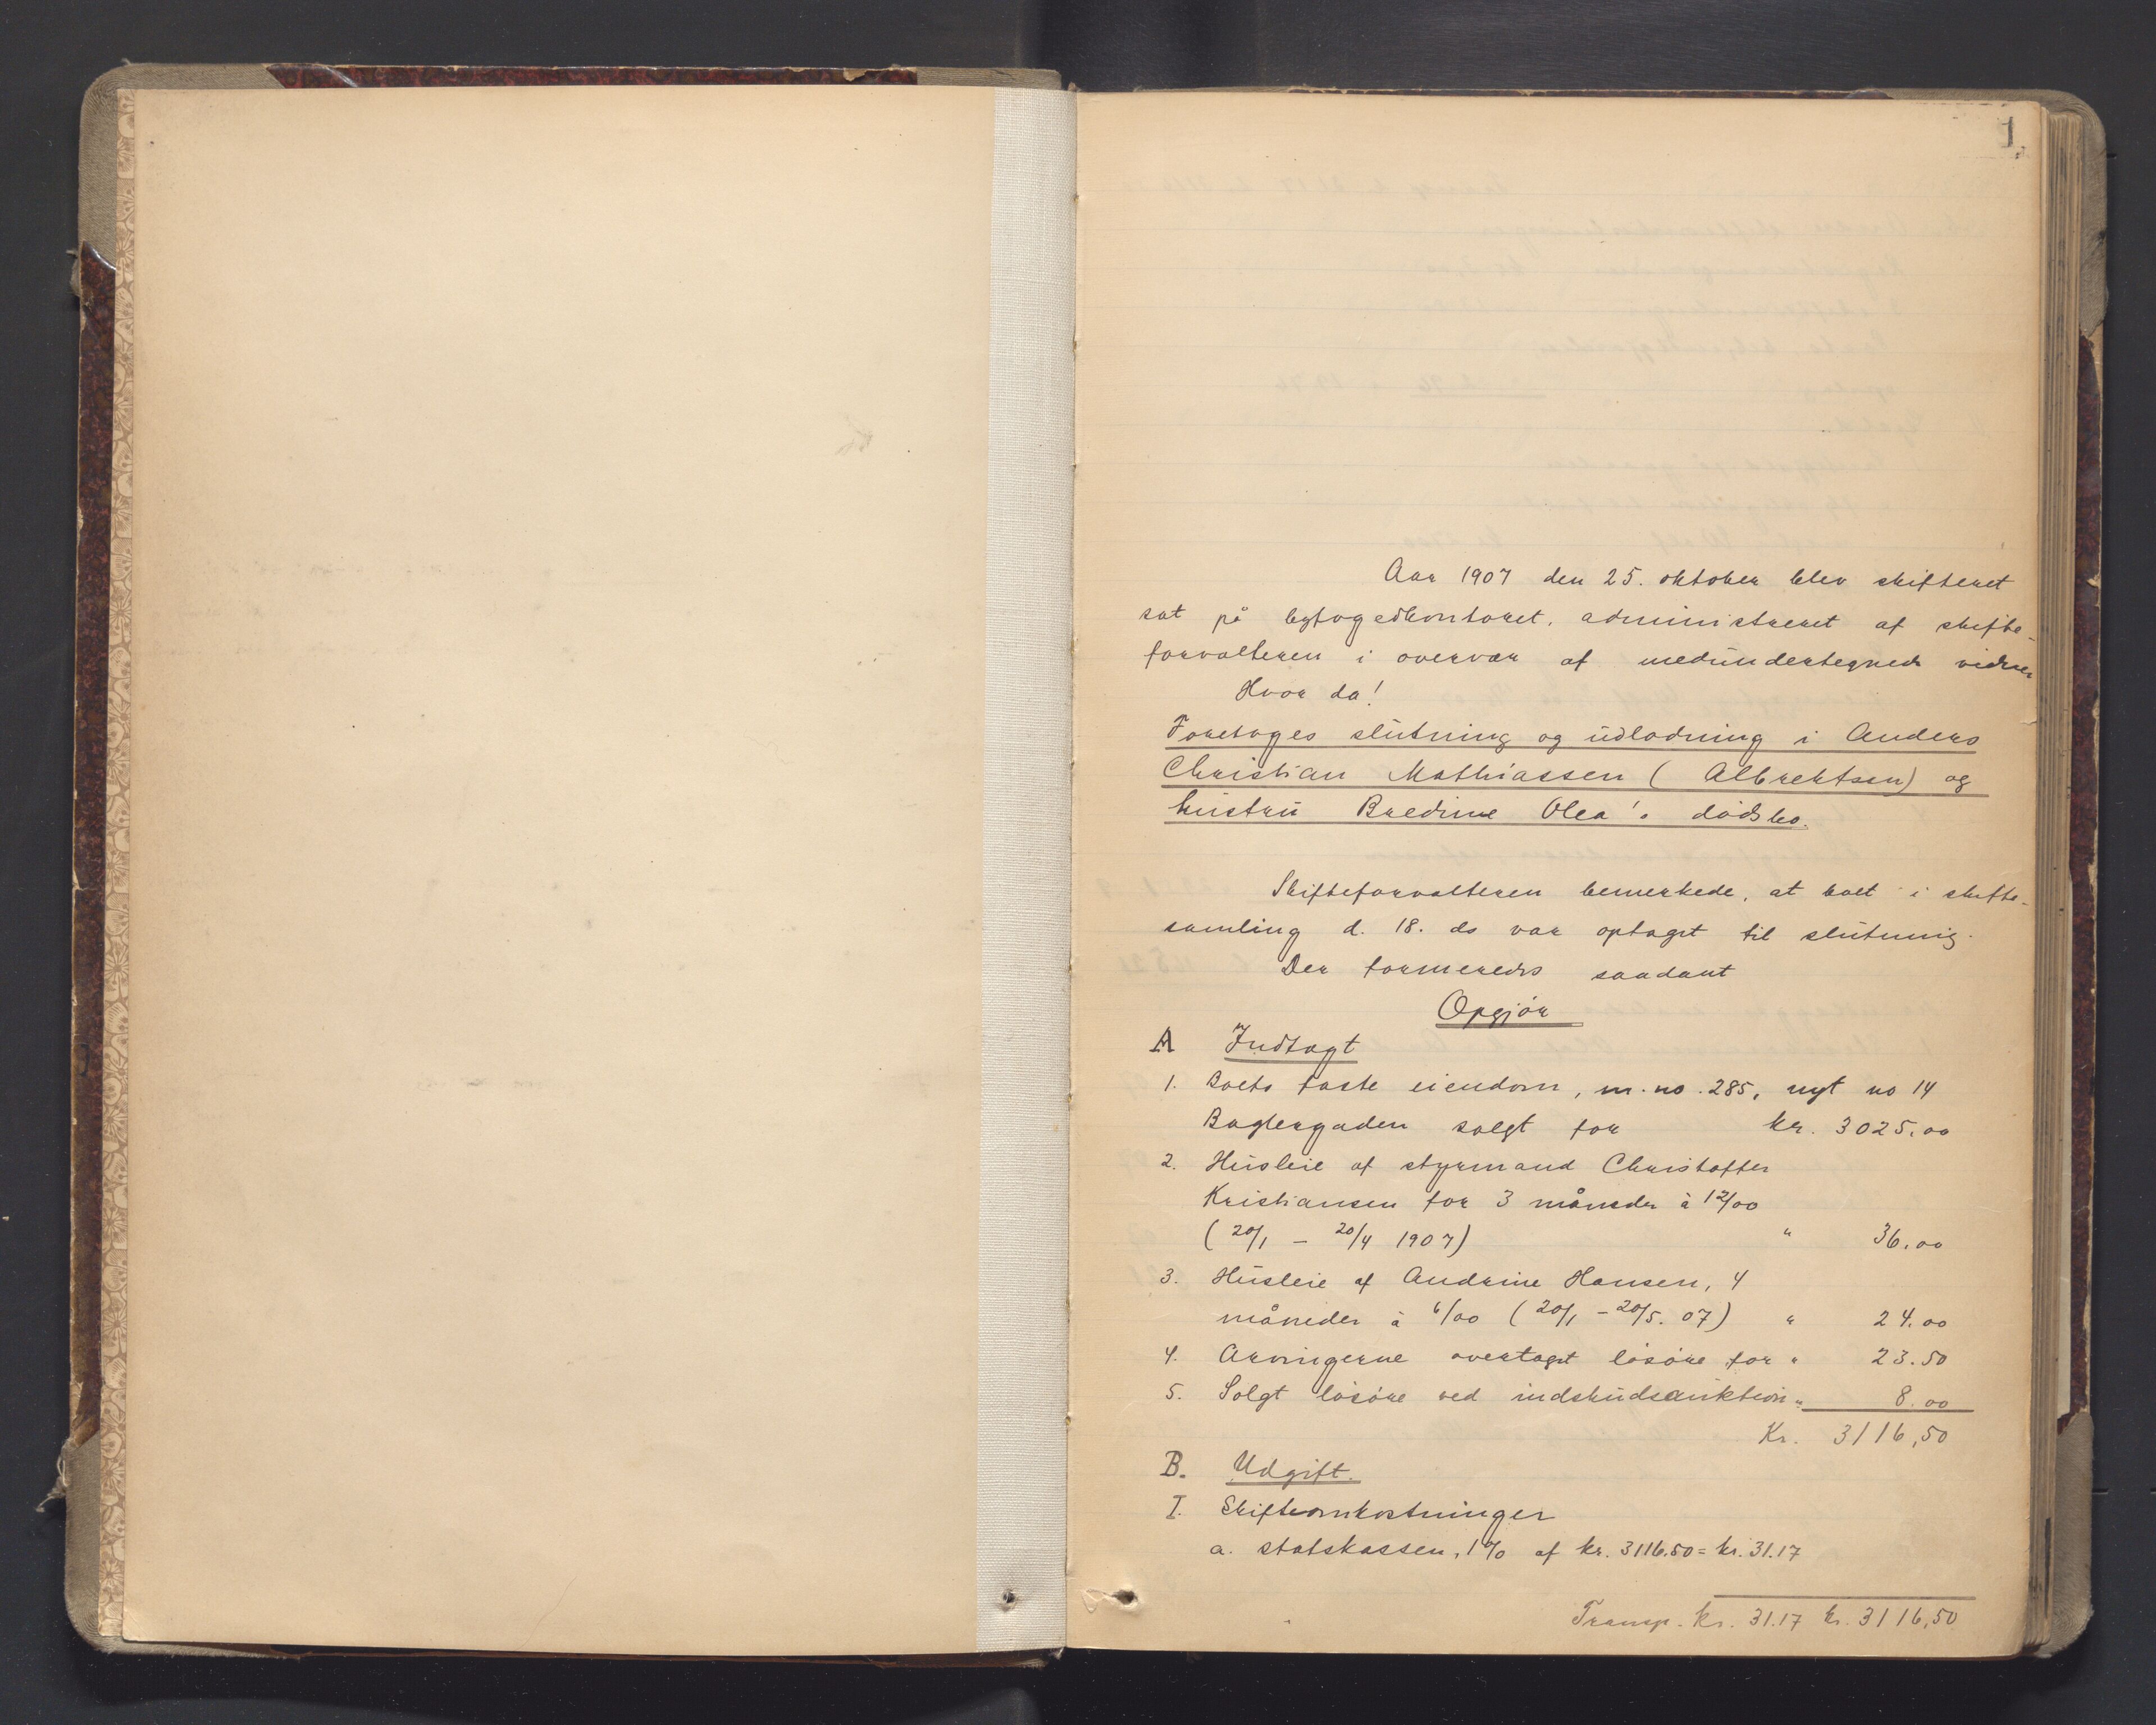 1.
Aar 1907 den 25. oktober blev skifteret
sat på byfogedkontoret, administreret af skifte-
forvalteren i overvær af medundertegnede vidner
Hvor da!
Foretoges slutning og udlodning i Anders
Christian Mathiassen (Albrektsen) og
hustru Bredine Olea's dödsbo.
Skifteforvalteren bemerkede, at boet i skifte-
samling d. 18. ds var optaget til slutning.
Der formeredes saadant
Opgjör
A Indtægt
1. Boets faste eiendom, m. no. 285, nyt no 14
Baglergaden solgt for kr. 3025.00
2. Husleie af styrmand Christoffer
Kristiansen for 3 måneder à 12/00
(20/1 - 20/4 1907) " 36.00
3. Husleie af Andrine Hansen, 4
måneder à 6/00 (20/1 - 20/5. 07) " 24.00
4. Arvingerne overtaget lösöre for " 23.50
5. Solgt lösöre ved indskudsauktion " 8.00
Kr. 3116,50
B. Udgift.
I. Skifteomkostninger
a. statskassen, 1% af kr. 3116.50 = kr. 31.17
Transp. kr. 31.17 kr. 3116,50